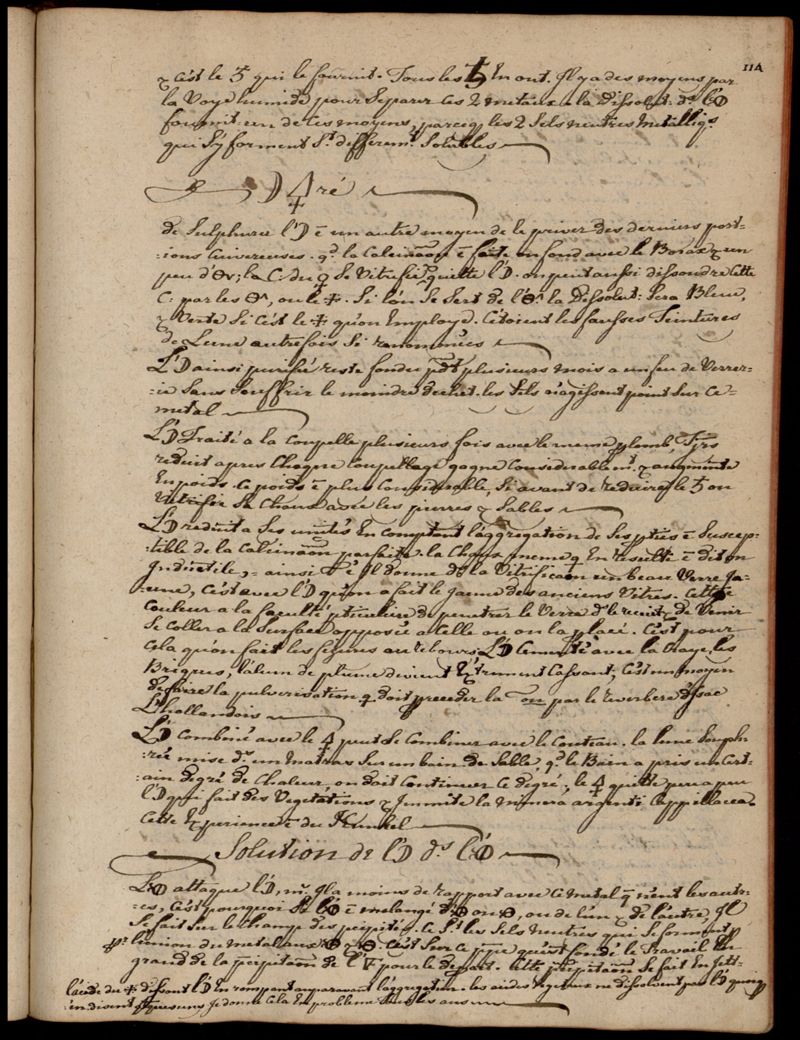 114
& c'est le ♄ qui le fournit. Tous les ♄ En ont. Il y a des moyens par
la Voye humide pour Separer Ces 2 metaux. la Dissolut: ds l'
fournit un de Ces moyens, parceq les 2 Sels neutres metalliqs
qui S'y forment St differemt Solubles
☽ 🜍ré
de Sulphurer l'☽ ē un autre moyen de le priver des derniers port-
:ions Cuivreuses. qd la Calcinaōn ē faite on fond avec le Borax & un
peu d' ; la C: du ♀ Se Vitrifie & quitte l'☽. on peut aussi dissoudre Cette
C: par les , ou le . Si l'on Se Sert de l' la Dissolut: Sera Bleue,
& Verte Si C'est le qu'on Employe. C'étoient les fausses Teintures
de Lune autrefois Si renommées
L'☽ ainsi purifié reste fondu pdt plusieurs mois a un feu de Verrer-
:ie Sans Souffrir le moindre dechet. les Sels n'agissent point Sur Ce
metal
L'☽ Traité a la Coupelle plusieurs fois avec le meme plomb, Tjrs
reduit apres Chaque Coupellage gagne Considerablemt & augmente
En poids. Ce poids ē plus Considerable, Si avant de reduire le ♄ on
Vitrifie Sa Chaux avec les pierres & Sables
L'☽ reduit a Ses unités En Comptant l'aggregation de Ses pties ē Suscep-
:tible de la Calcinaōn parfaite. la Chaux meme q En resulte ē dit on
Irductile, ainsi Il donne de la Vitrificaōn un beau Verre Ja-
:une, C'est avec l'☽ qu'on a fait le Jaune des anciens Vitres. Cette
Couleur a la faculté pticuliere de penetrer le Verre ds le recuit & de Venir
Se Coller a la Surface opposée a Celle ou on l'a placé. C'est pour
Cela qu'on fait les figures au rebours. L'☽ Cementé avec la Craye, les
Briques, l'alun de plume devient Extremement Cassant, C'est un moyen
de faire la pulverisation q doit preceder la par le reverbere d'Isac
L'hollandois
L'☽ Combiné avec le 🜍 peut Se Combiner avec le Couteau. la lune Soufph
:rée mise ds un matras Sur un bain de Sable, qd le Bain a pris un Cert-
:ain degré de Chaleur, on doit Continuer Ce degré, le 🜍 quitte peu a peu
l'☽ qui fait des Vegetations & Immite la minera argenti Cappillacea.
Cette Experience ē du Kunkel
Solution de l'☽ ds l'
L' attaque l'☽, ms Il a moins de rapport avec Ce metal q n'ent les autr-
:es, C'est pourquoi Si l' ē melangé d' ou , ou de l'un & de l'autre, Il
Se fait Sur le Champ des pcipités. Ce St les Sels neutres qui Se forment
pr l'union du metal aux & . C'est Sur Ce ppe qu'est fondé le Travail En
grand de la pcipitaōn de l' pour le depart. Cette pcipitaōn Se fait En Jett-
l'acide du dissout l'☽ En rompant auparavant l'aggregation. les acides vegetaux ne dissolvent pas l'☽ quoiq
en disent quelquesuns, Je donne Cela En probleme